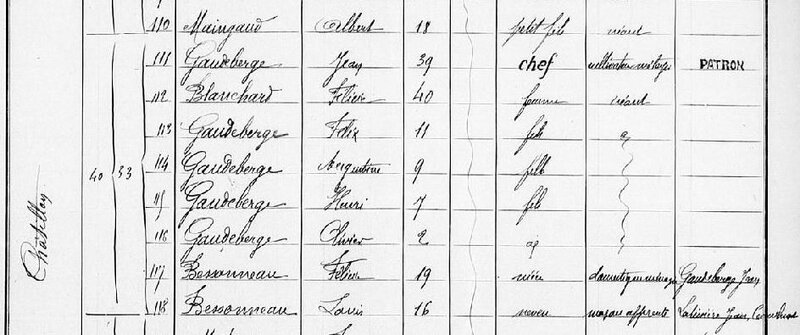 110 Mainzaud Albert 18 petit fils néant
111 Gaudeberge Jean 39 chef cultivateur métayer PATRON
112 Blanchard Félicie 40 femme néant
113 Gaudeberge Félix 11 fils
114 Gaudeberge 9
115 Gaudeberge Henri 7 fils
116 Gaudeberge Olivier 2
Chatillon 40 33
117 Bessonneau Félicie 19 nièce domestique Gaudeberge Jean
118 Bessonneau Louis 16 neveu maçon Jean